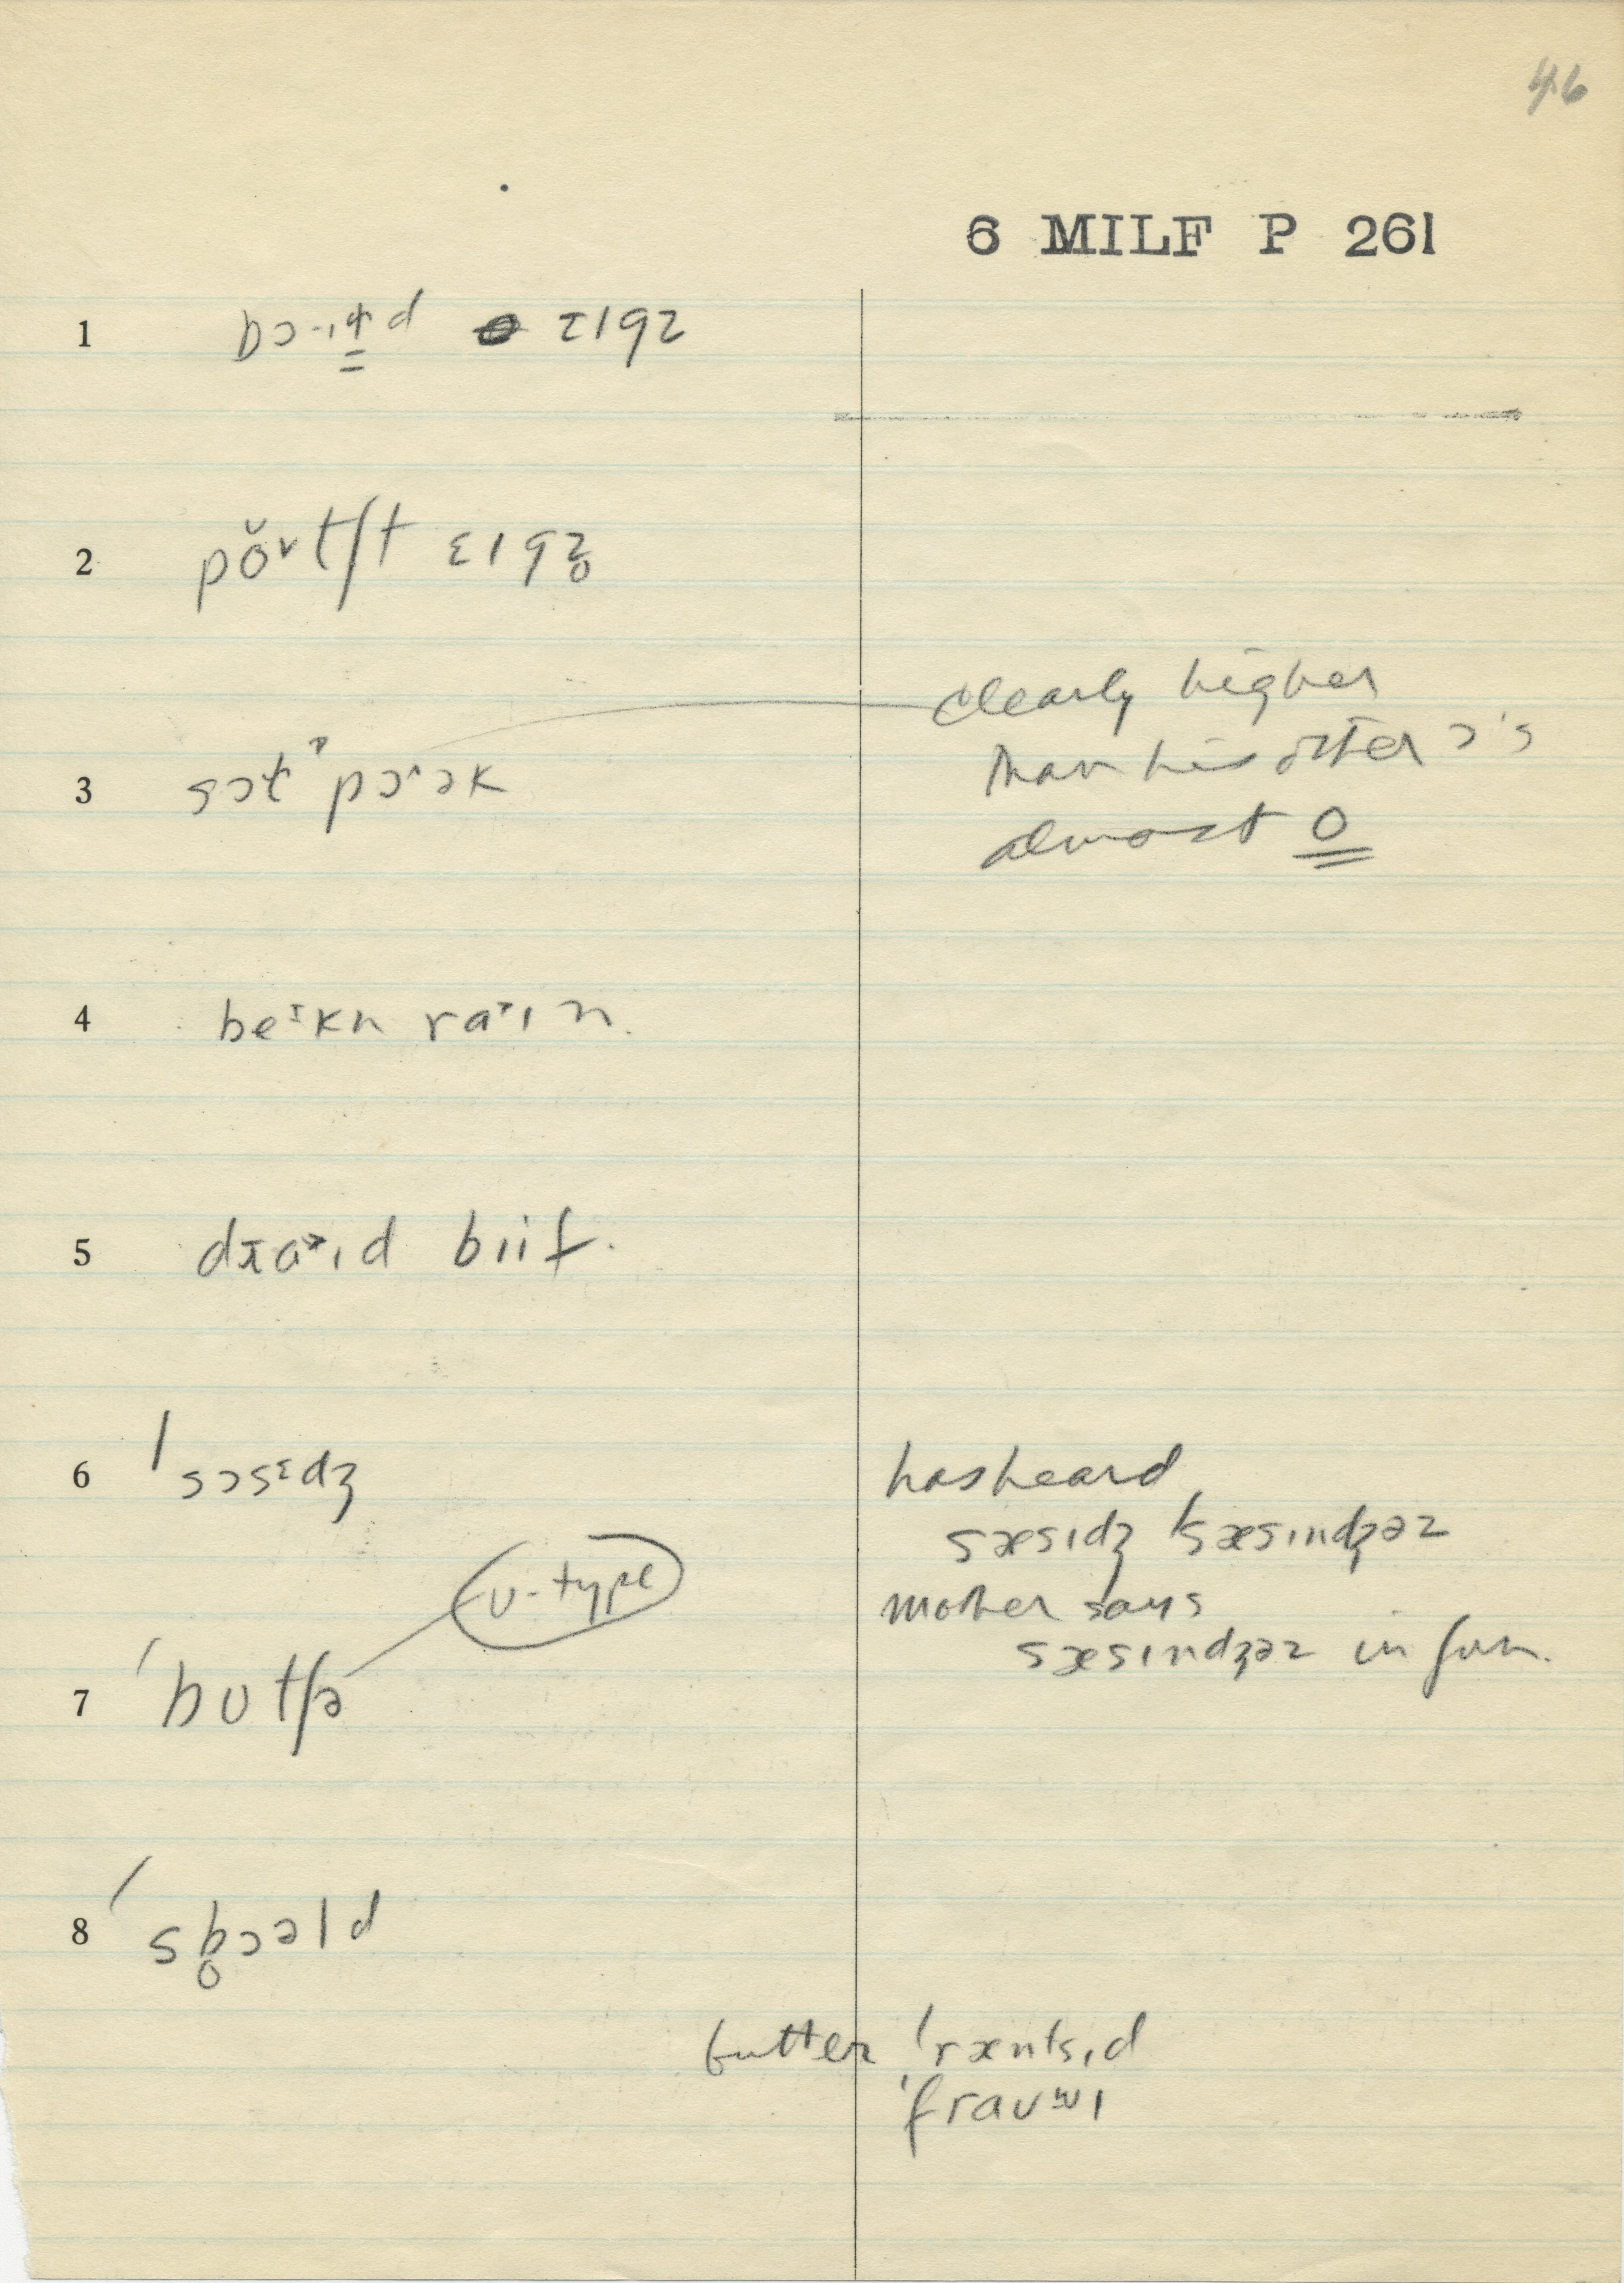 46
6 MILF P 261
1 bɔ·ɪɫd ɛɪgz
2 pŏ˅tʃt ɛɪgz̥
3 sɔɫt pɔ˄ək
clearly higher
than his other ɔ's
almost o
4 beᶦkn raᶺɪn.
5 dɹaᶺɪd biif.
6 'sɔsɪdʒ
has heard
sæsɪdʒ 'sæsɪndʒəz
mother says
sæsɪndʒəz in fun.
ʊ-type
7 'bʊtʃə
8 'sb̥ɔəld
butter 'ræntsɪd
'fraʊʷɪ